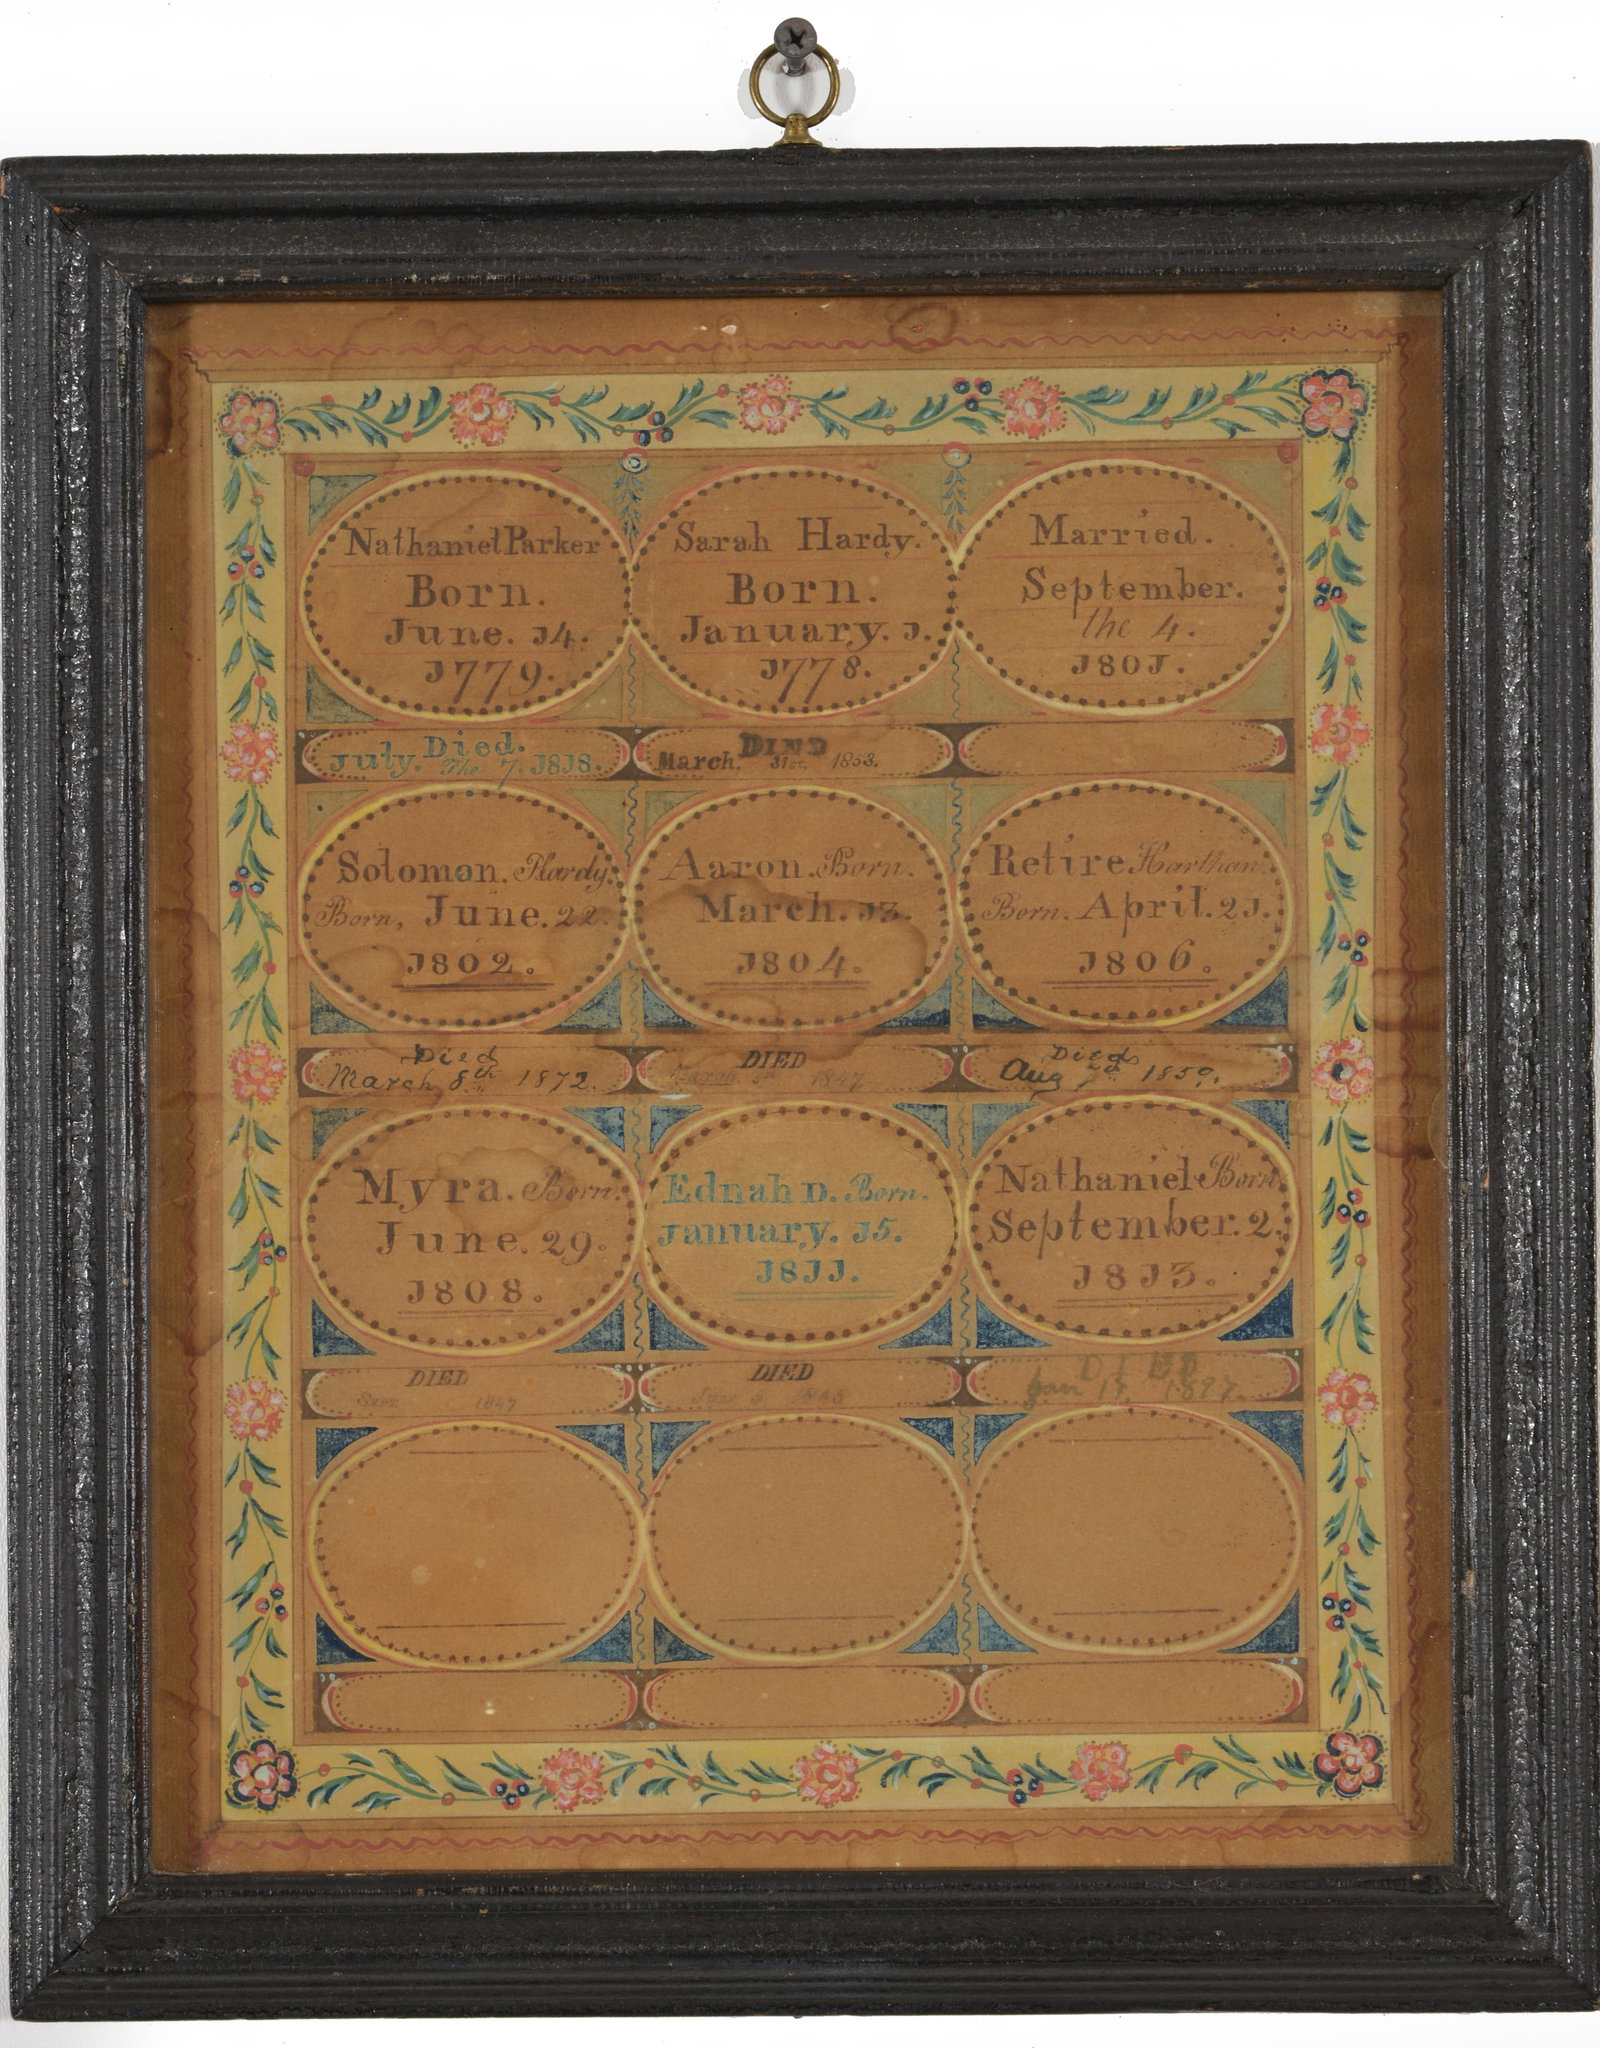 Nathaniel Parker
Born.
June. J4.
J779.
Sarah Hardy.
Born.
January. J.
J778.
Married.
September.
the 4.
J80J.
Died.
July. The 7. J8J8.
DIED
March. 31st 1853.
Soloman. Hardy.
Born, June. 22.
J802.
Aaron. Born.
March. J3.
J804.
Retire Harthan.
Born. April. 2J.
J806.
Died
March 8th 1872.
DIED
1847
Died
Aug 7th 1859.
Myra. Born.
June. 29.
J808.
Ednah D. Born.
January. J5.
J8JJ.
Nathaniel Born.
September. 2.
J8J3.
DIED
Sept. 1847
DIED
DIED
Jan 15, 1897.